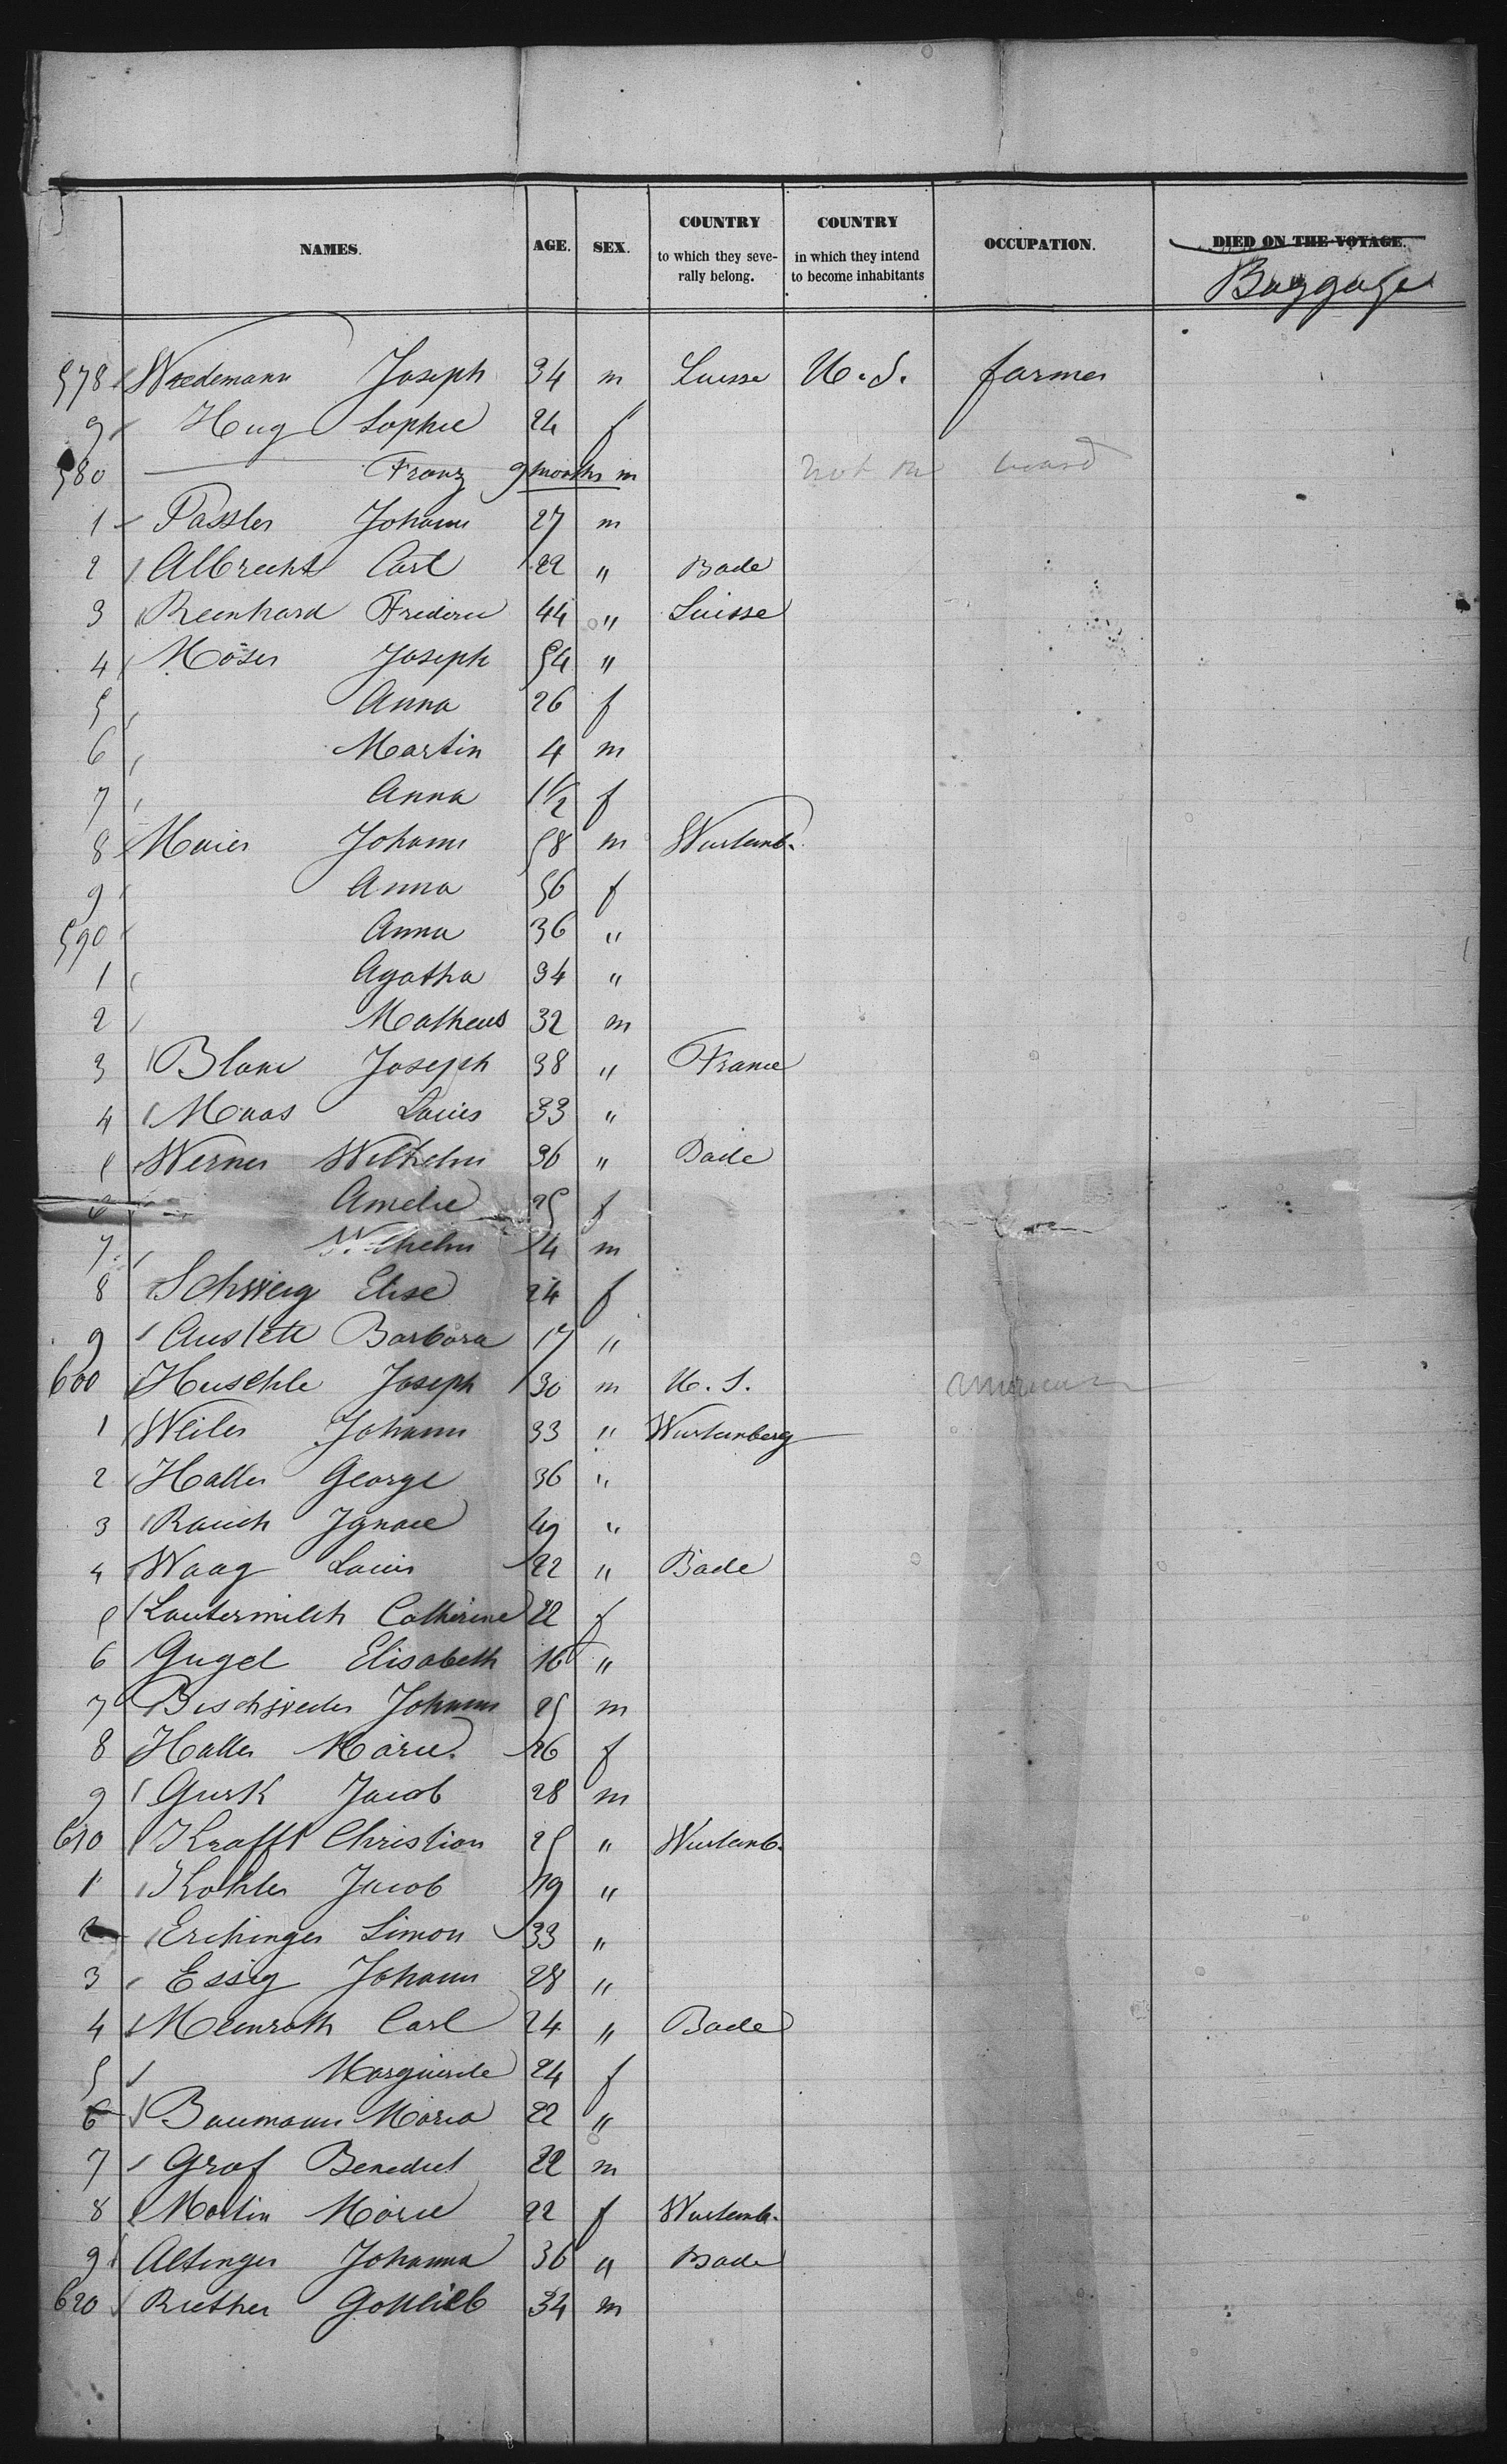 NAMES. AGE. SEX. COUNTRY to which they severally belong. COUNTRY in which they intend to become inhabitants OCCUPATION. DIED ON THE VOYAGE.
Baggage
578 Wiedemann Joseph 34 m Suisse U.S. farmer
9 Hug Sophie 24 f
580 — Franz 9 months m not on board
1 Passler Johann 27 m
2 Albrecht Carl 22 " Bade
3 Reinhard Frederic 44 " Suisse
4 Möser Joseph 54 "
5 Anna 26 f
6 Martin 4 m
7 Anna 1 1/2 f
8 Maier Johann 58 m Wurtemb.
9 Anna 56 f
590 Anna 36 "
1 Agatha 34 "
2 Matheus 32 m
3 Blanc Joseph 38 " France
4 Maas Louis 33 "
5 Werner Wilhelm 36 " Bade
6 Amelie 25 f
7 Wilhelm 14 m
8 Schweig Elise 24 f
9 Barbara 17 "
600 Huschle Joseph 30 m U.S. American
1 Weiler Johann 33 " Wurtemberg
2 Haller George 36 "
3 Rauch Ignace 49 "
4 Waag Louis 22 " Bade
5 Lautermilch Catherine 22 f
6 Gugel Elisabeth 16 "
7 Bischweiler Johann 25 m
8 Haller Marie. 26 f
9 Gurk Jacob 28 m
610 Krafft Christian 25 " Wurtemb.
1 Kohler Jacob 19 "
2 Erchinger Simon 33 "
3 Essig Johann 28 "
4 Meinroth Carl 24 " Bade
5 Marguerite 24 f
6 Baumann Maria 22 "
7 Graf Benedict 22 m
8 Martin Marie 22 f Wurtemb.
9 Altinger Johanna 36 " Bade
620 Riether Gottlieb 34 m